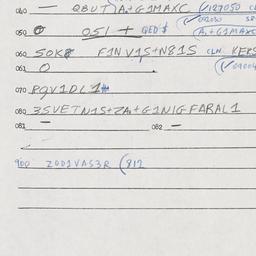 040 — QBUT A.+G1MAXC (✓127050 CL
050 O 051 + QED $ (A.+G1MAXC
060 SOK8 F1NV1S+N81S CLN KERS
061 O (✓09004
070 PQV1DL1#
080 3SVETN1S+ZA.+G1N1GFARAL1
081 — 082 —
900 ZOD1VAS3R (812